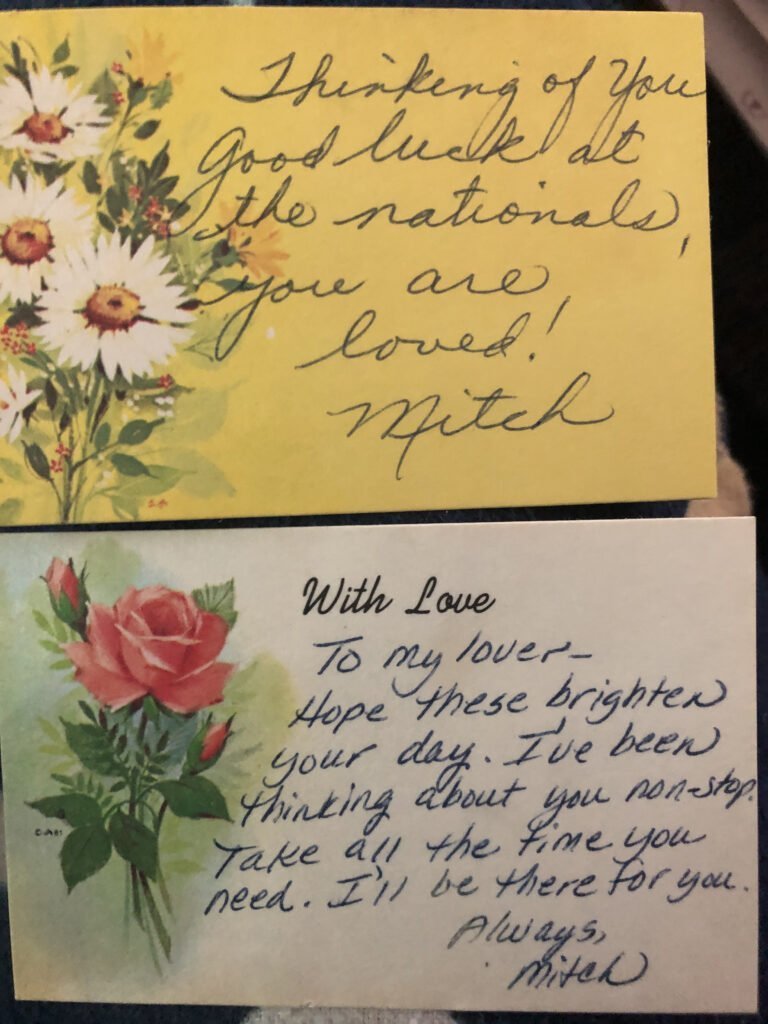 Thinking of You
Good luck at
the nationals,
you are
loved!
Mitch
With Love
To my lover-
Hope these brighten
your day. I've been
thinking about you non-stop.
Take all the time you
need. I'll be there for you.
Always,
Mitch